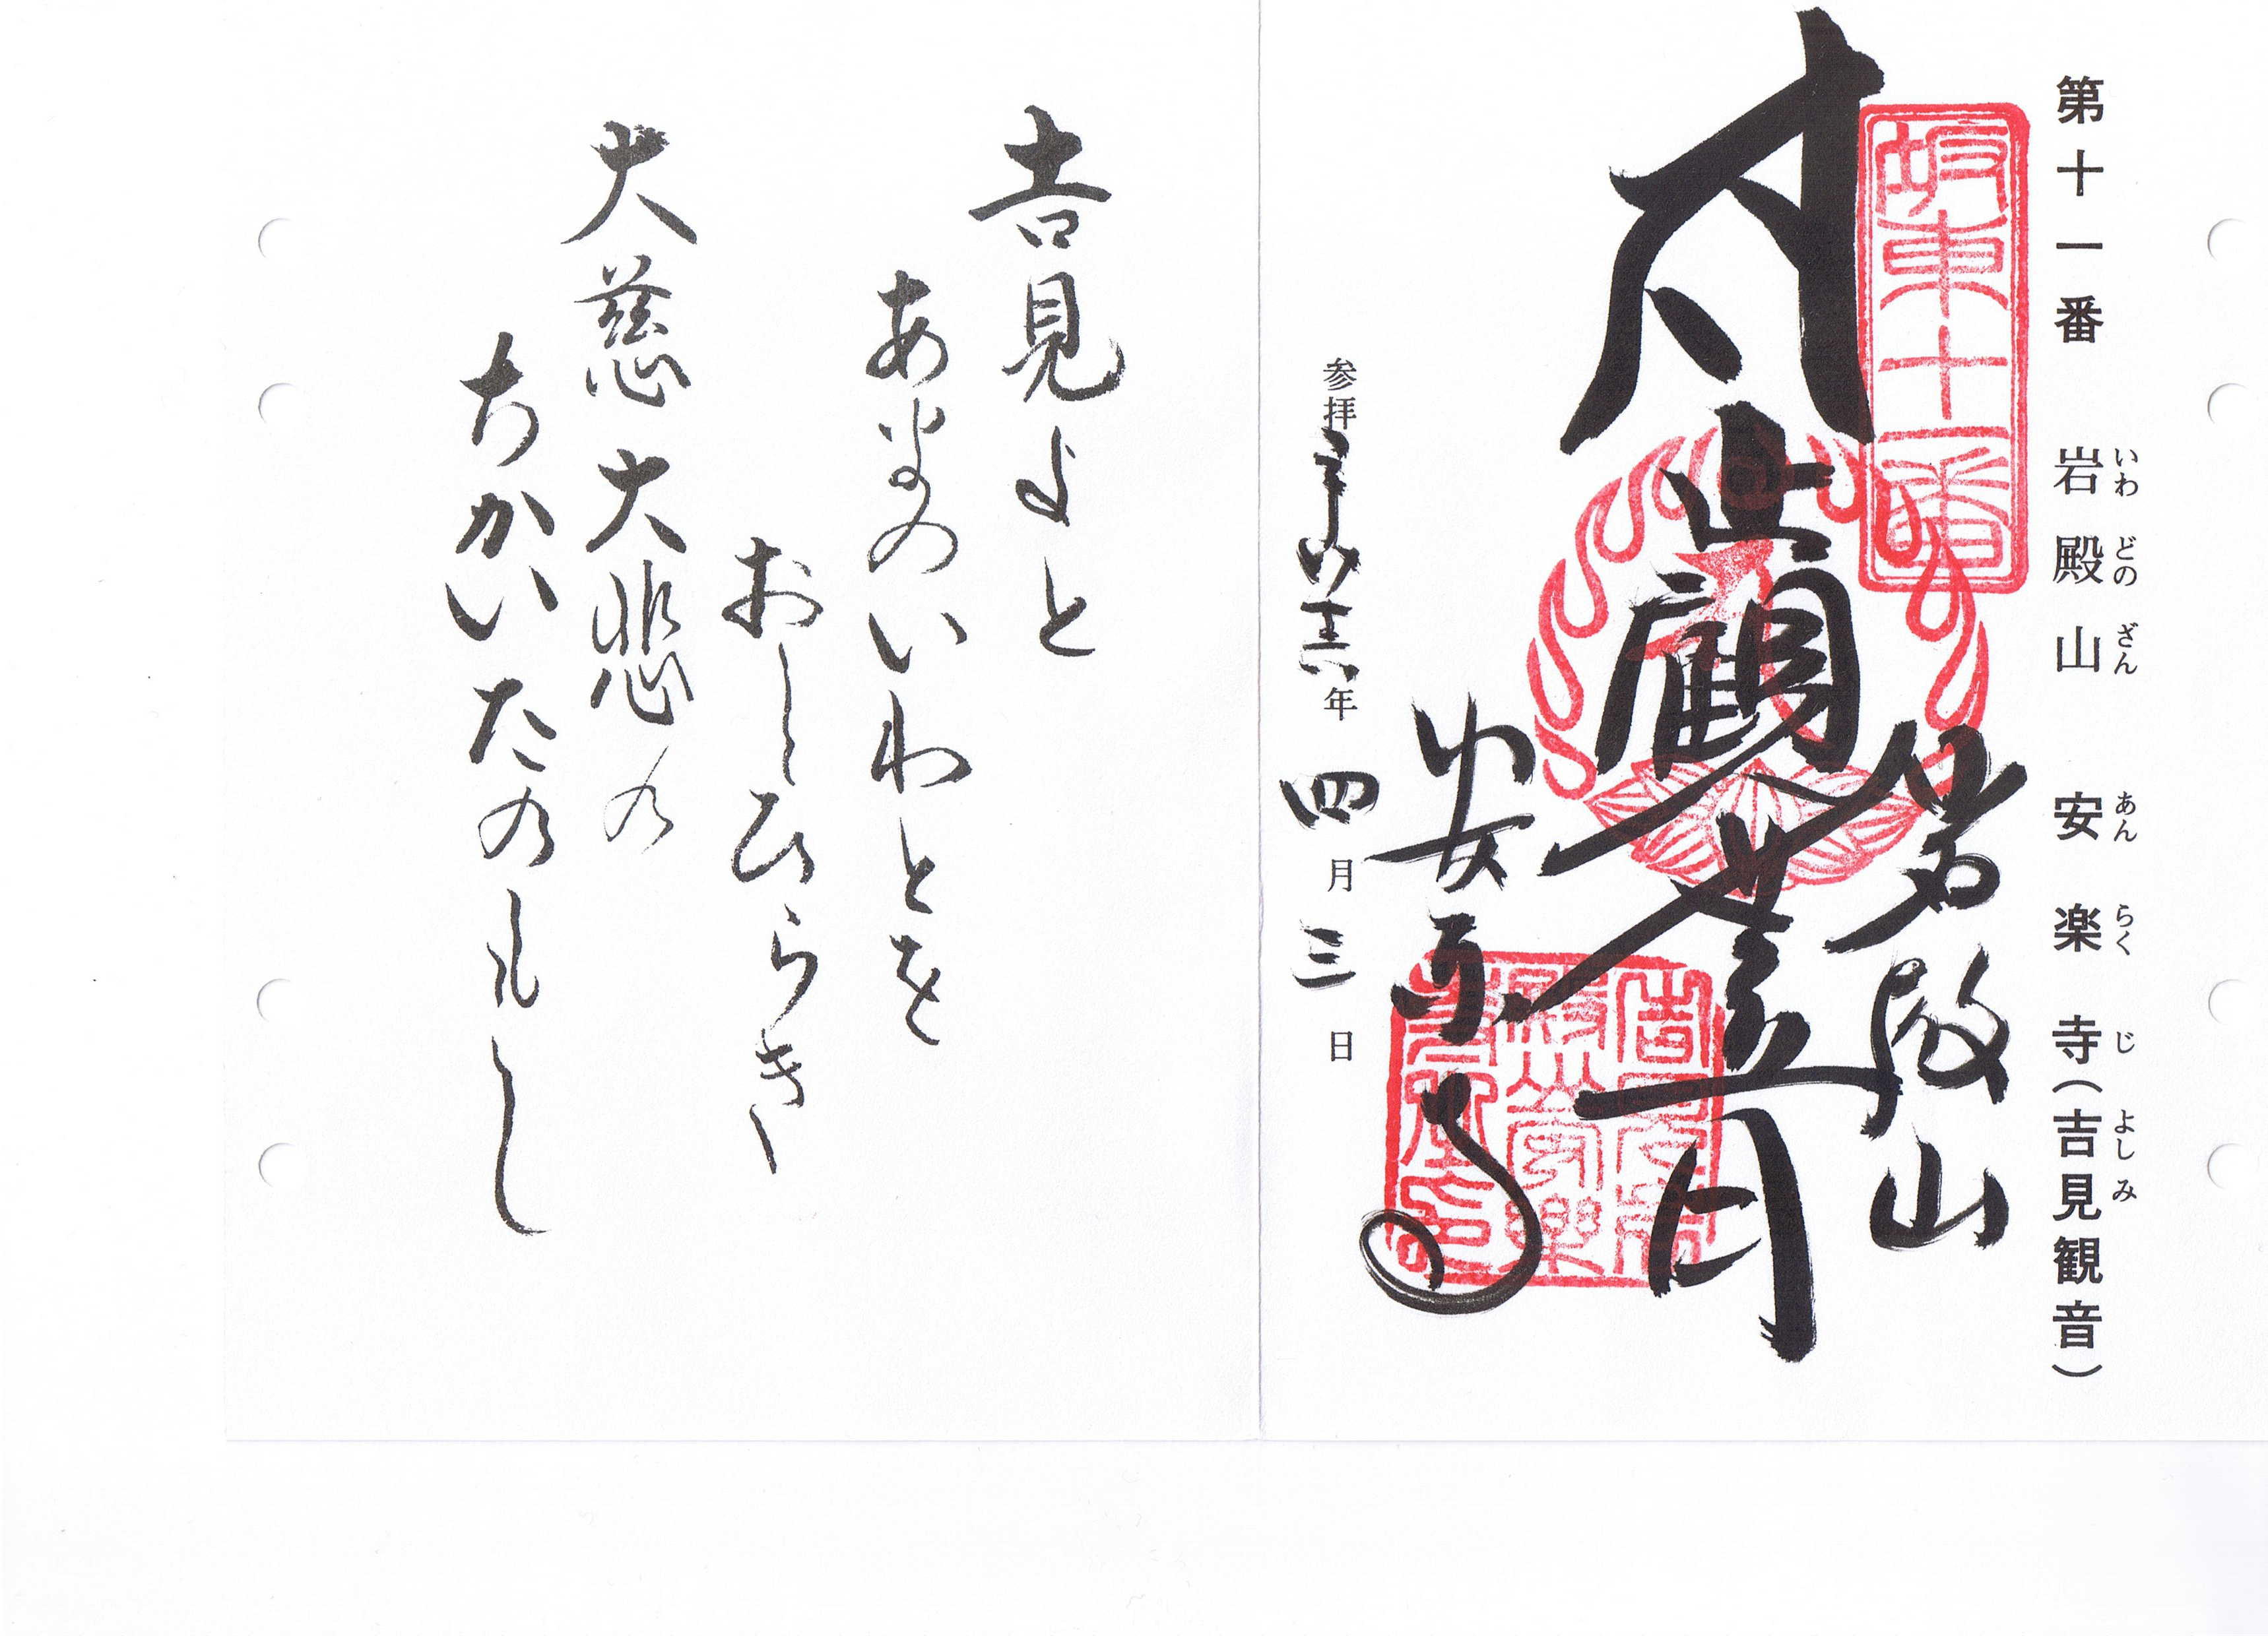 第十一番 岩殿山 安楽寺(吉見観音)
いわ どの ざん あん らく じ よしみ
坂東十一番
岩殿山
安楽寺
参拝 年 四月 三日
吉見よと
あまのいわとを
おしひらき
大慈大悲の
ちかいたのもし